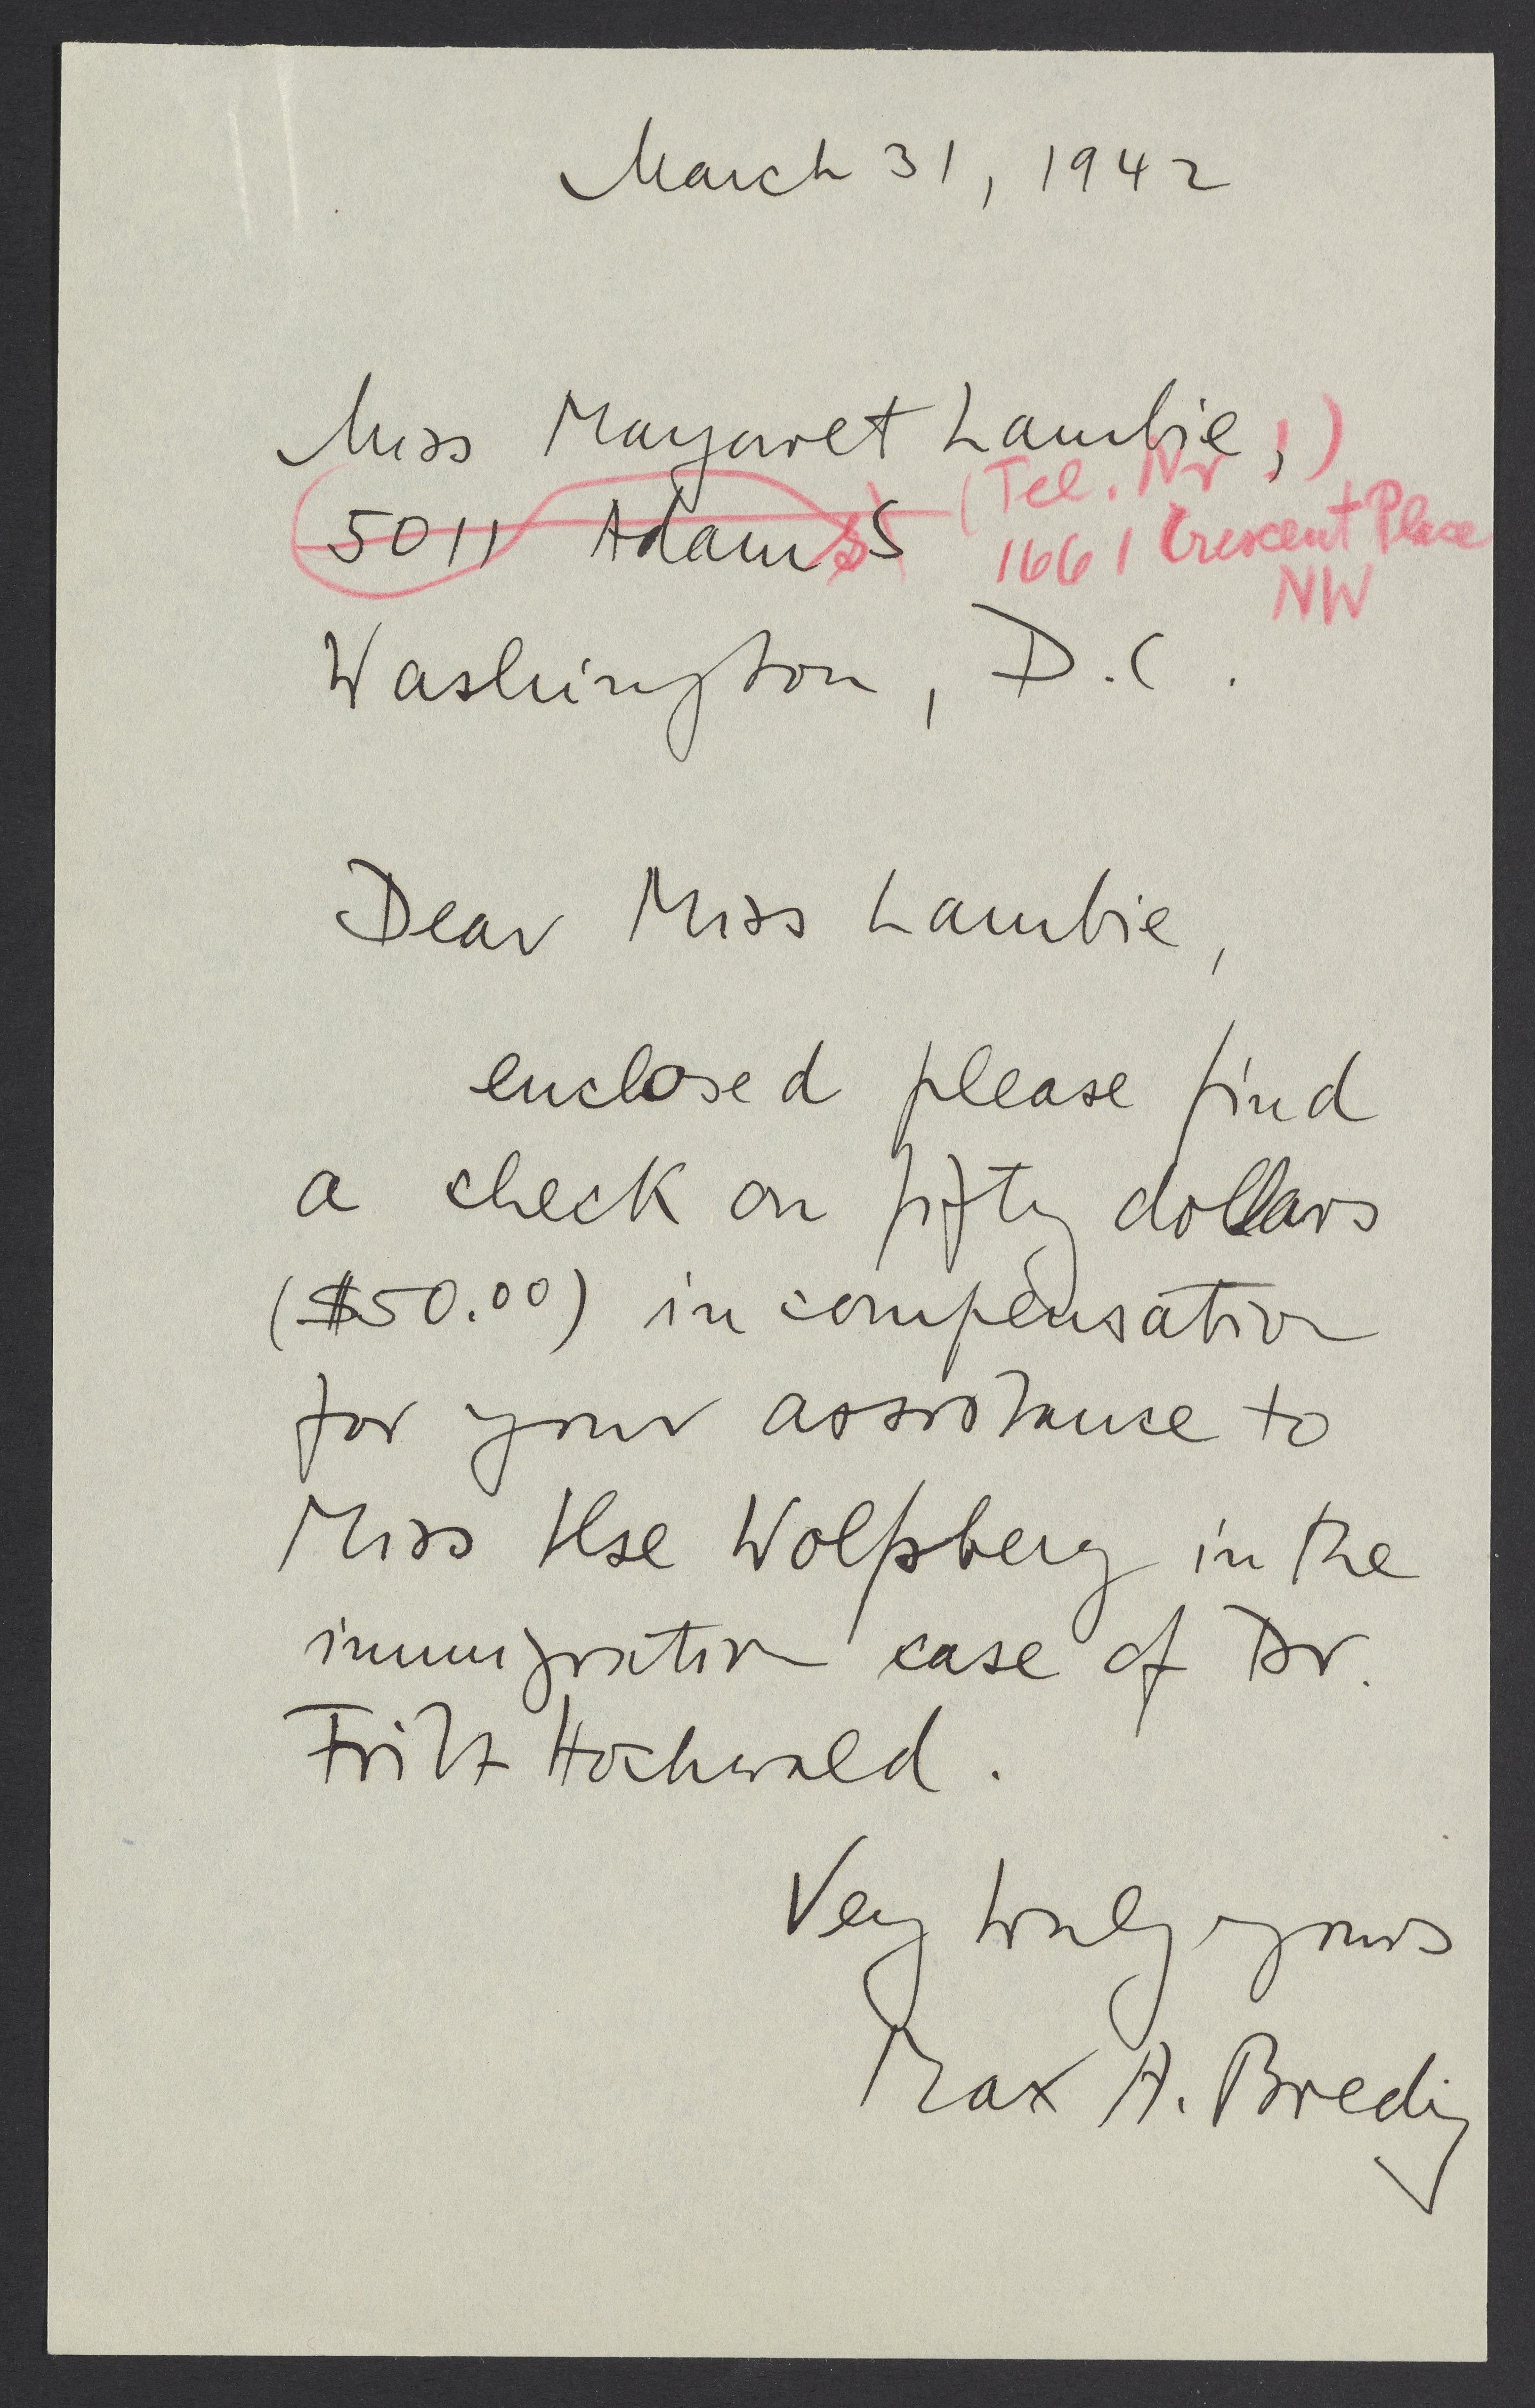 March 31, 1942
Miss Margaret Lambie,
(Tel. Nr !)
5011 Adams
1661 Crescent Place
NW
Washington, D.C.
Dear Miss Lambie,
enclosed please find
a check on fifty dollars
($50.00) in compensation
for your assistance to
Miss Ilse Wolfsberg in the
immigration case of Dr.
Fritz Hochwald.
Very truly yours
Max A. Bredig